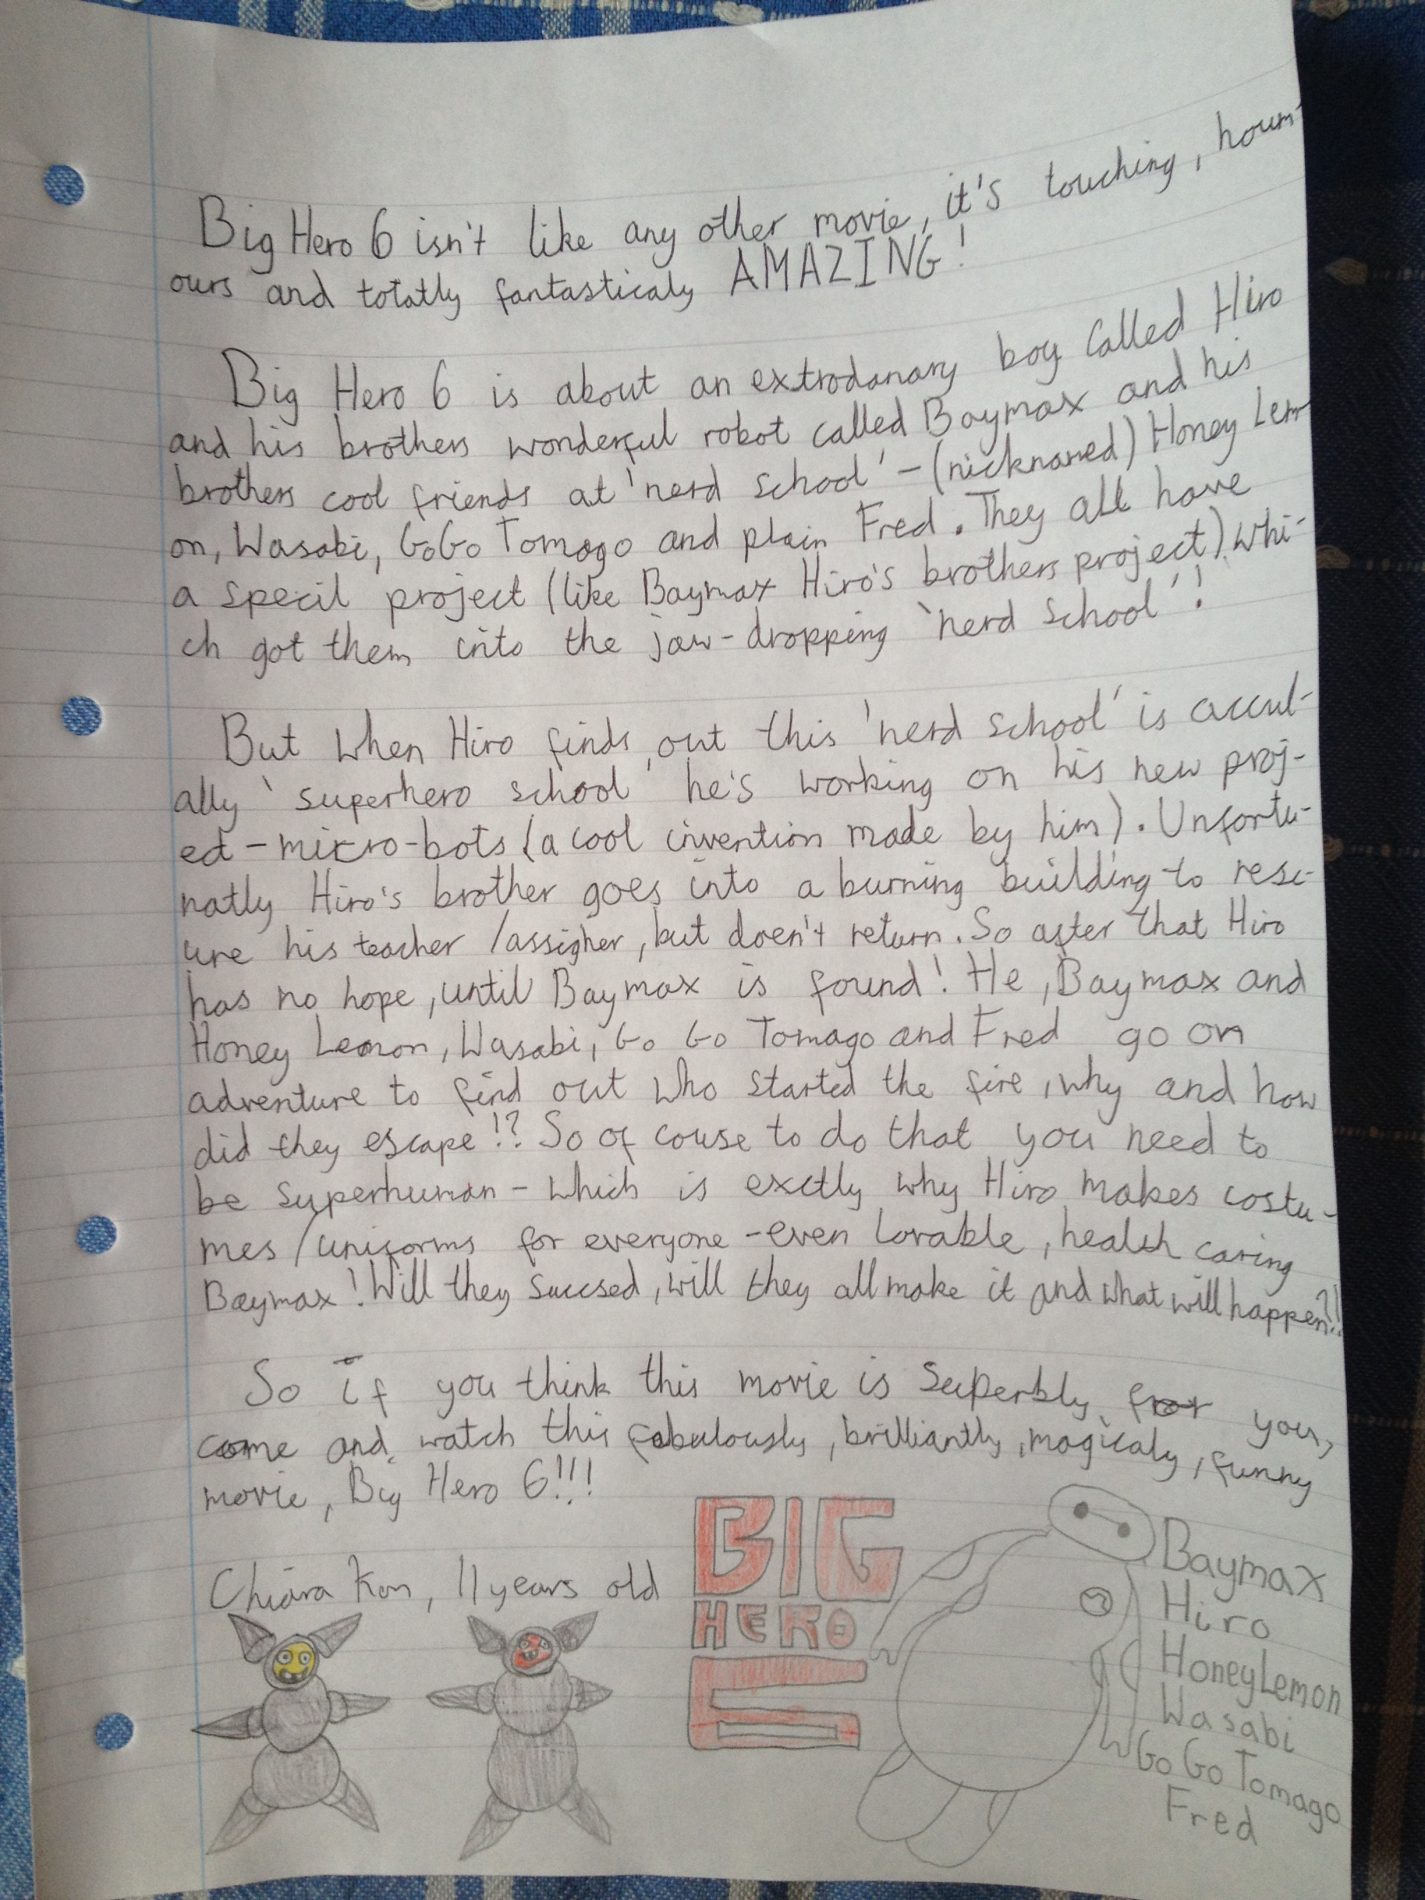 Big Hero 6 isn't like any other movie, it's touching, houm-
ours and totatly fantasticaly AMAZING!
Big Hero 6 is about an extrodanary boy called Hiro
and his brothers wonderful robot called Baymax and his
brothers cool friends at 'nerd school' - (nicknamed) Honey Lem
on, Wasabi, GoGo Tomago and plain Fred. They all have
a specil project (like Baymax Hiro's brothers project) whi-
ch got them into the jaw-dropping 'nerd school'!
But when Hiro finds out this 'nerd school' is accul-
ally 'superhero school' he's working on his new proj-
ect - micro-bots (a cool invention made by him). Unfortu-
natly Hiro's brother goes into a burning building to resc-
ure his teacher /assigher, but doen't return. So after that Hiro
has no hope, until Baymax is found! He, Baymax and
Honey Lemon, Wasabi, Go Go Tomago and Fred go on
adventure to find out who started the fire, why and how
did they escape!? So of couse to do that you need to
be superhuman - which is exctly why Hiro makes costu-
mes /uniforms for everyone - even lovable, health caring
Baymax! Will they succsed, will they all make it and what will happen?!!
So if you think this movie is superbly for you,
come and watch this fabulously, brilliantly, magicaly, funny
movie, Big Hero 6!!!
Chiara Kon, 11 years old
BIG
HERO
6
Baymax
Hiro
Honey Lemon
Wasabi
Go Go Tomago
Fred